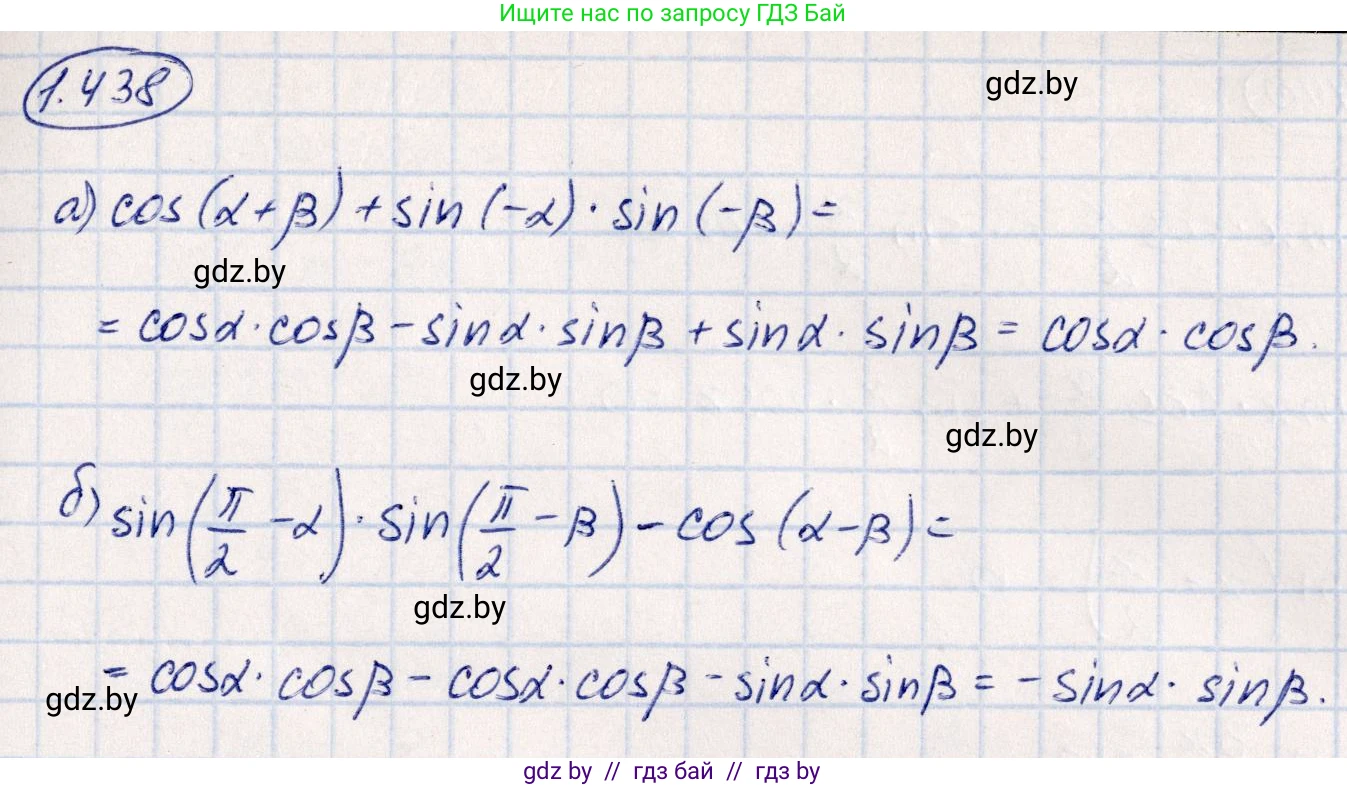 Ищите нас по запросу ГДЗ Бай
1.438
gdz.by
а) cos(α+β)+sin(-α)·sin(-β)=
gdz.by
= cosα·cosβ-sinα·sinβ+sinα·sinβ= cosα·cosβ.
gdz.by
gdz.by
б) sin(π/2-α)·sin(π/2-β)-cos(α-β)=
gdz.by
= cosα·cosβ-cosα·cosβ-sinα·sinβ=-sinα·sinβ.
gdz.by
gdz by // гдз бай // гдз by